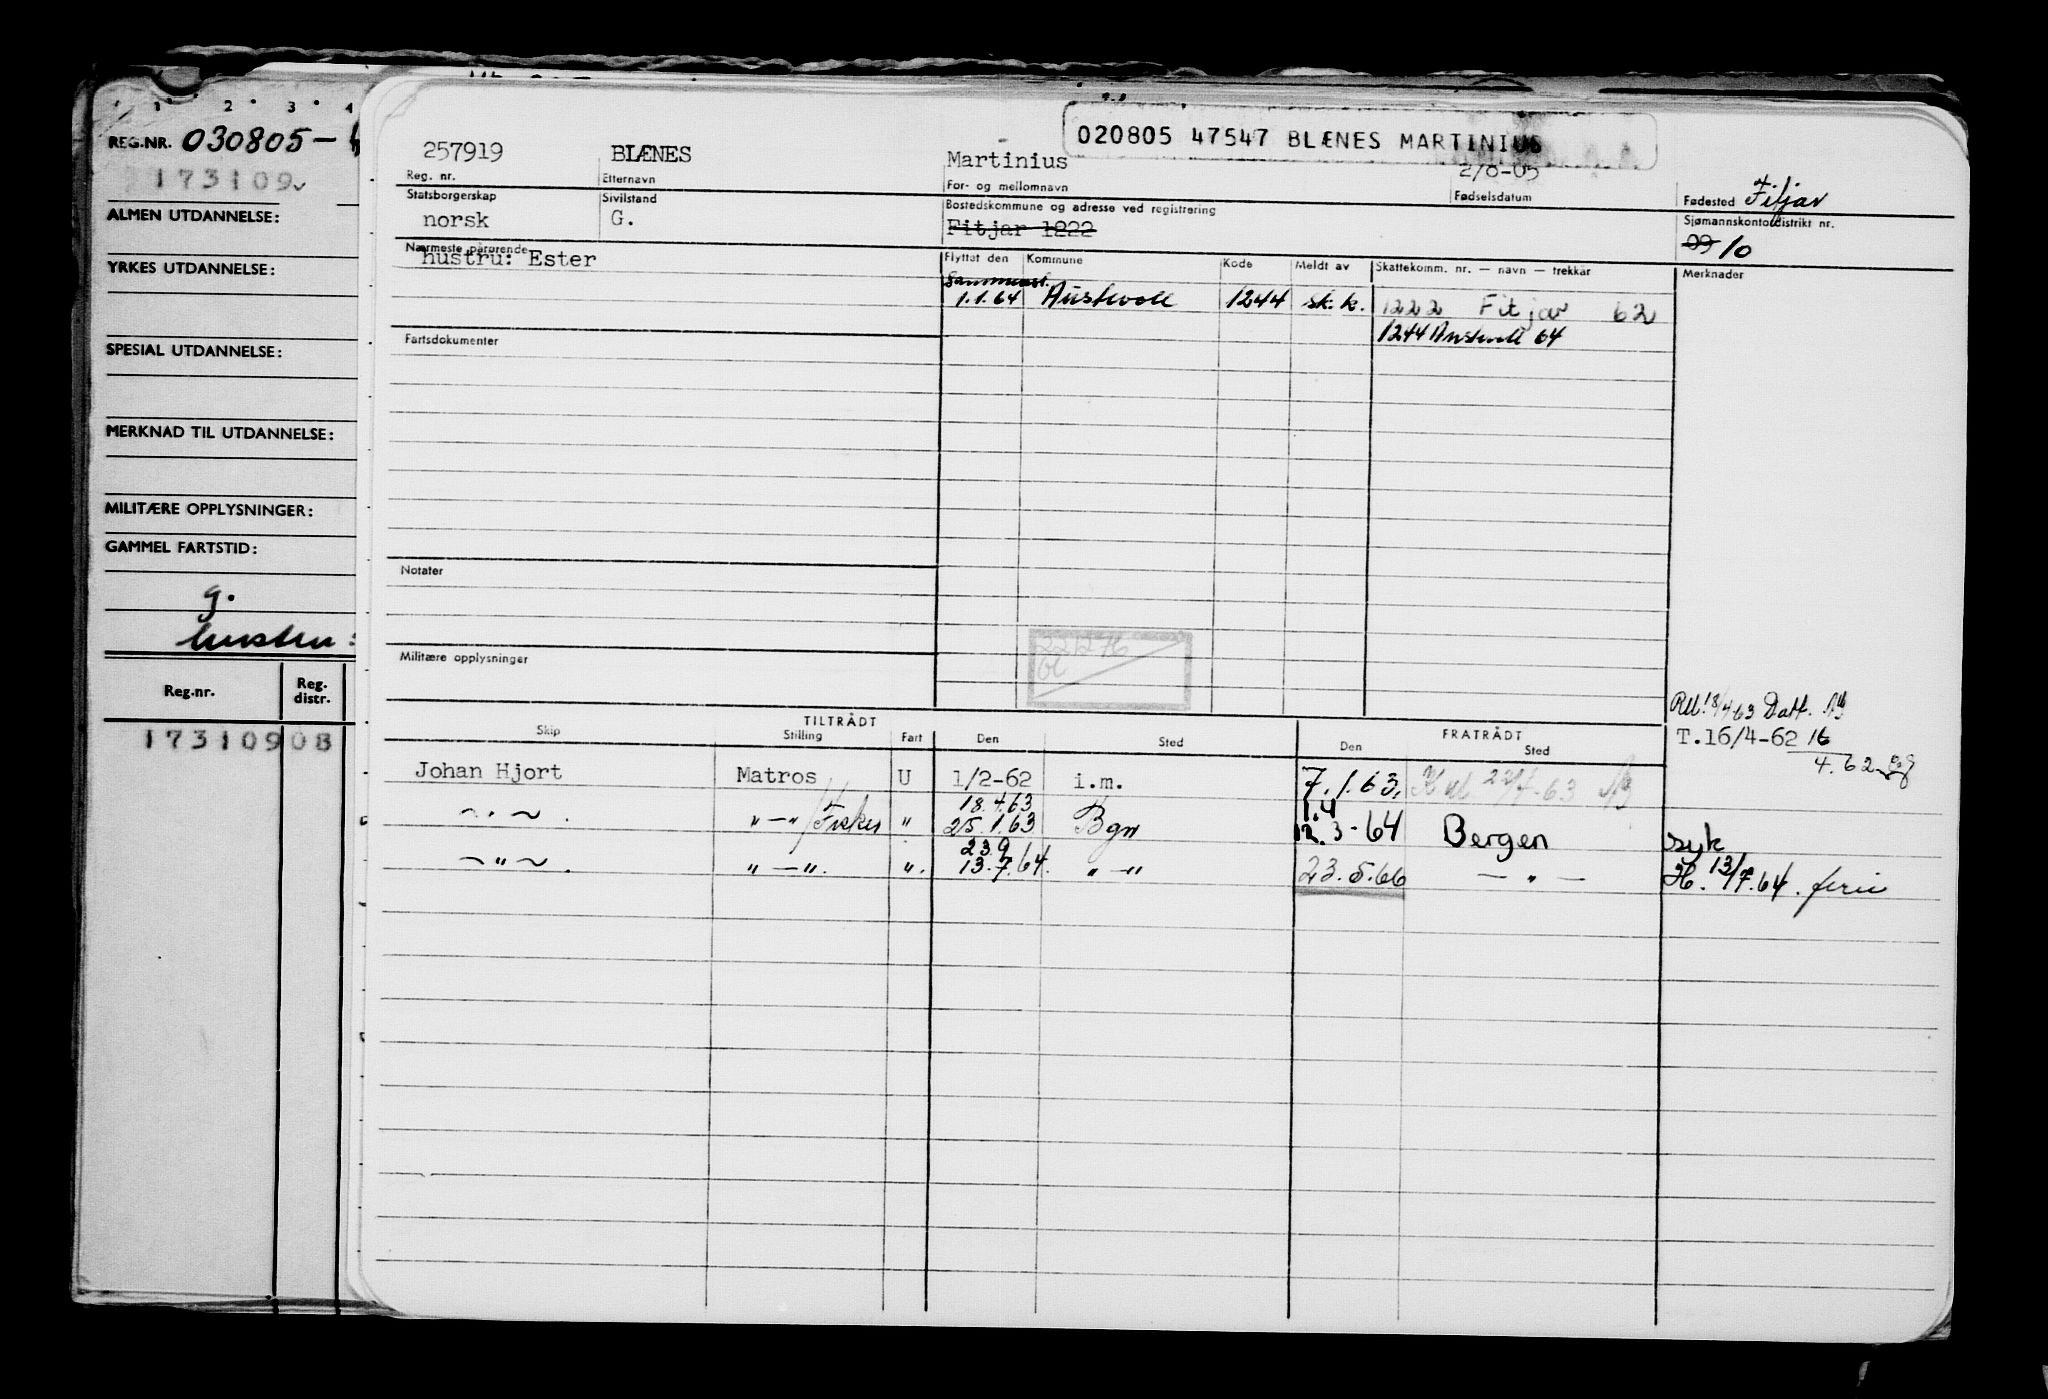 1 2 3 4
REG.NR. 030805-
173109
ALMEN UTDANNELSE:
YRKES UTDANNELSE:
SPESIAL UTDANNELSE:
MERKNAD TIL UTDANNELSE:
MILITÆRE OPPLYSNINGER:
GAMMEL FARTSTID:
g.
hustru:
Reg.nr. Reg. distr.
173109 08
020805 47547 BLÆNES MARTINIUS
257919 BLÆNES Martinius 2/8-05 Fitjar
Reg. nr. Etternavn For- og mellomnavn Fødselsdatum Fødested
Statsborgerskap Sivilstand Bostedskommune og adresse ved registrering Sjømannskontoldistrikt nr.
norsk G. Fitjar 1222 09 10
Nærmeste pårørende Flyttet den Kommune Kode Meldt av Skattekomm. nr. — navn — trekkår Merknader
hustru: Ester
1.1.64 Austevoll 1244 sk.k. 1222 Fitjar 62
1244 Austevoll 64
Fartsdokumenter
Notater
Militære opplysninger
22 12 76
TILTRÅDT FRATRÅDT
Skip Stilling Fart Den Sted Den Sted
18/4 63 Datt.
T.16/4-62 16
4.62
Johan Hjort Matros U 1/2-62 i.m. 7.1.63, 22/4-63
18.4.63 1.4
— " — . " — " / Fisker " 25.1.63 Bgn 12.3-64 Bergen syk
23.9
— " — . " — ". ". 13.7.64. " — " 23.5.66 — " — H. 13/7.64. ferie